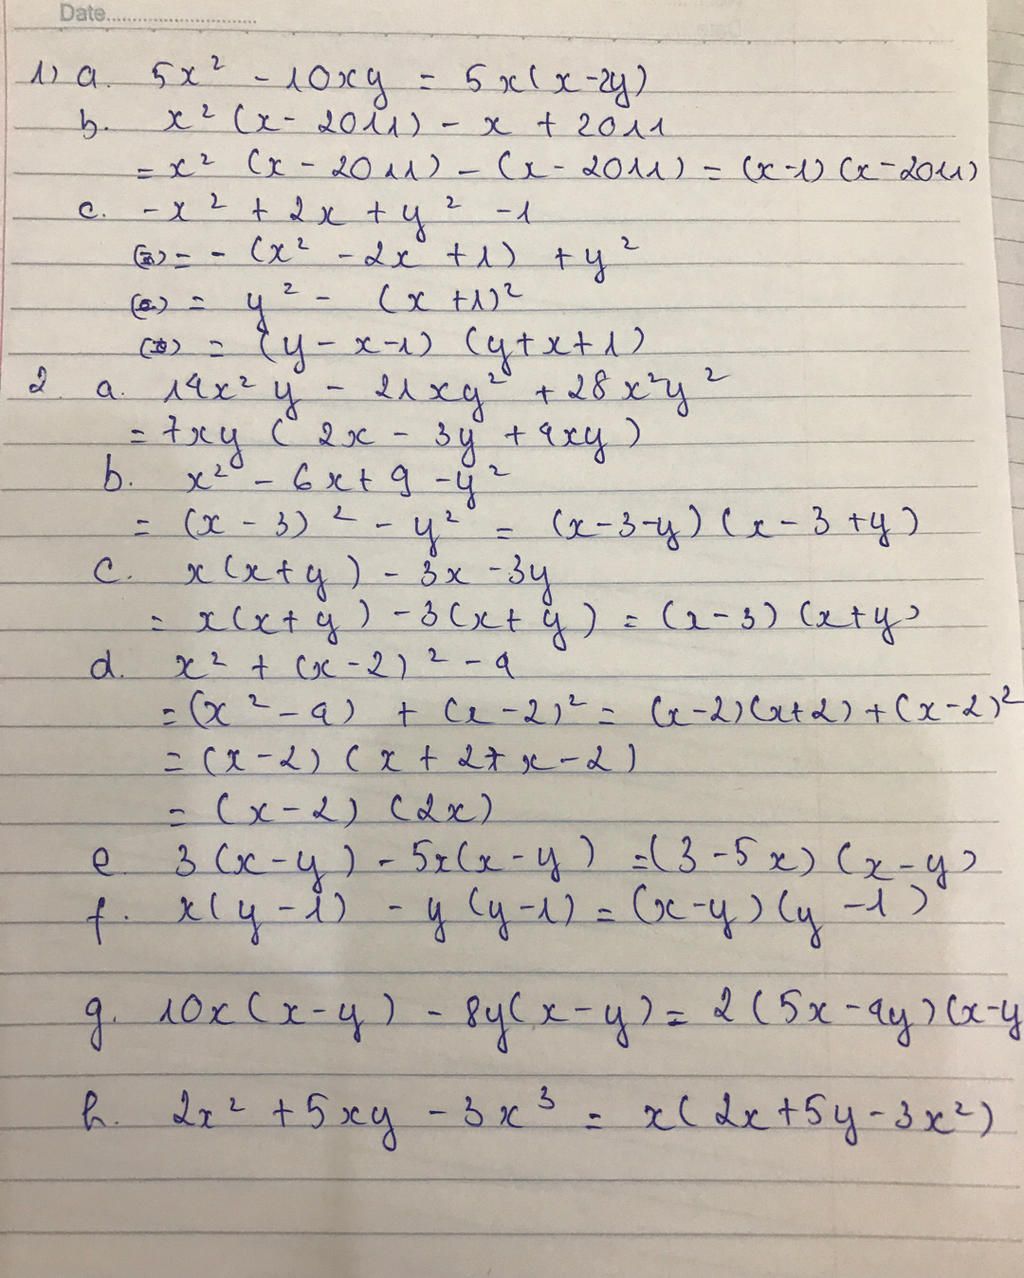 Date..............................
1) a. 5x² - 10xy = 5x(x-2y)
b. x² (x - 2011) - x + 2011
= x² (x - 2011) - (x - 2011) = (x-1) (x-2011)
c. -x² + 2x + y² - 1
= - (x² - 2x + 1) + y²
= y² - (x + 1)²
= (y - x - 1) (y + x + 1)
2. a. 14x²y - 21xy² + 28x²y²
= 7xy ( 2x - 3y + 4xy )
b. x² - 6x + 9 - y²
= (x - 3)² - y² = (x-3-y) (x-3+y)
c. x(x+y) - 3x - 3y
= x(x+y) - 3(x+y) = (x-3) (x+y)
d. x² + (x-2)² - 4
= (x² - 4) + (x-2)² = (x-2)(x+2) + (x-2)²
= (x-2) (x + 2 + x - 2)
= (x-2) (2x)
e. 3(x-y) - 5x(x-y) = (3-5x) (x-y)
f. x(y-1) - y(y-1) = (x-y)(y-1)
g. 10x(x-y) - 8y(x-y) = 2(5x-4y)(x-y
h. 2x² + 5xy - 3x³ = x(2x+5y-3x²)